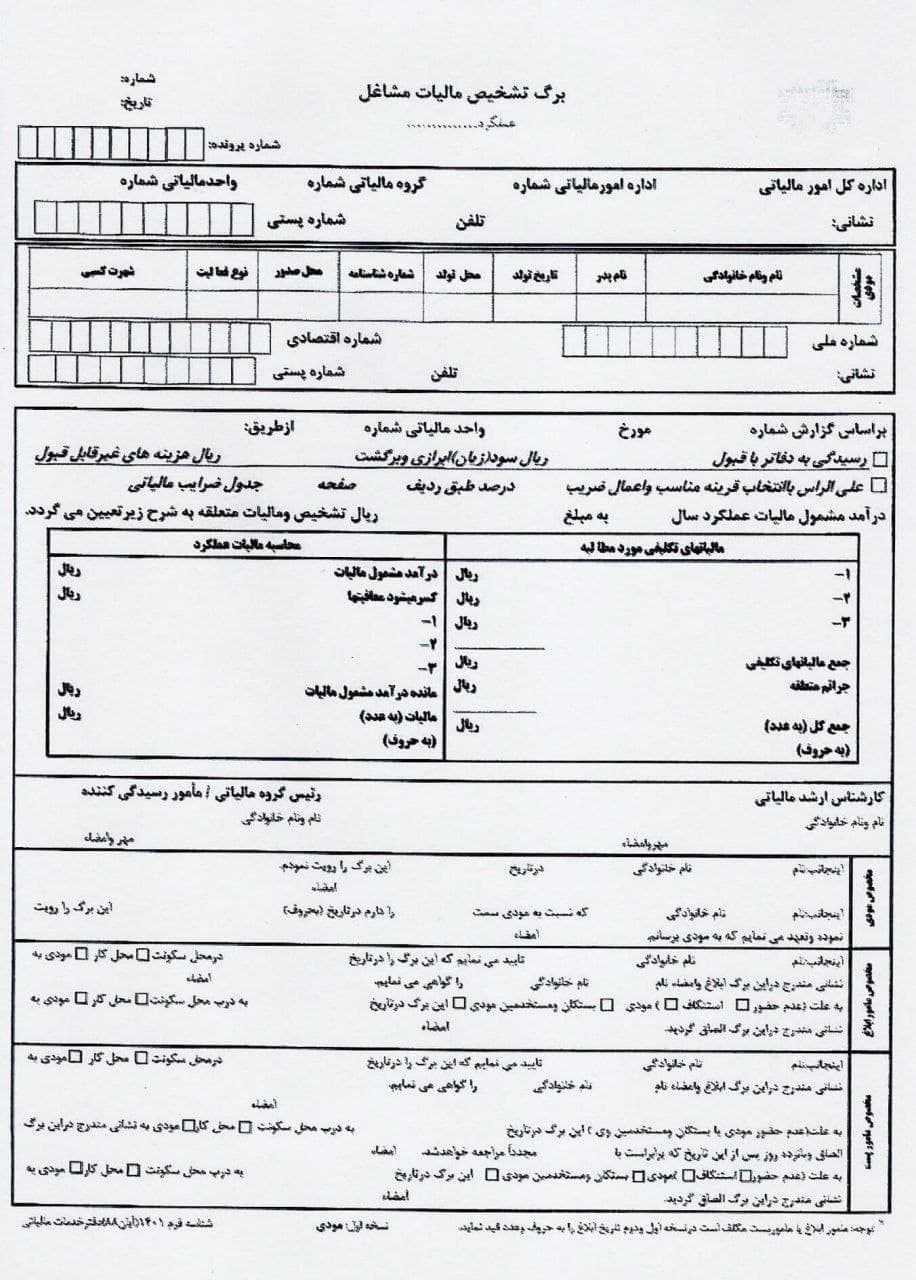 شماره:
برگ تشخیص مالیات مشاغل
تاریخ:
عملکرد..............
شماره پرونده:
اداره کل امور مالیاتی اداره امورمالیاتی شماره گروه مالیاتی شماره واحدمالیاتی شماره
نشانی: تلفن شماره پستی
مشخصات مودی
نام ونام خانوادگی نام پدر تاریخ تولد محل تولد شماره شناسنامه محل صدور نوع فعا لیت شهرت کسبی
شماره ملی شماره اقتصادی
نشانی: تلفن شماره پستی
براساس گزارش شماره مورخ واحد مالیاتی شماره ازطریق:
رسیدگی به دفاتر با قبول ریال سود(زیان)ابرازی وبرگشت ریال هزینه های غیرقابل قبول
علی الراس باانتخاب قرینه مناسب واعمال ضریب درصد طبق ردیف صفحه جدول ضرایب مالیاتی
درآمد مشمول مالیات عملکرد سال به مبلغ ریال تشخیص ومالیات متعلقه به شرح زیرتعیین می گردد.
مالیاتهای تکلیفی مورد مطا لبه محاسبه مالیات عملکرد
۱- ریال درآمد مشمول مالیات ریال
۲- ریال کسرمیشود معافیتها ریال
۳- ریال ۱-
۲-
جمع مالیاتهای تکلیفی ریال ۳-
جرائم متعلقه ریال مانده درآمد مشمول مالیات ریال
جمع کل (به عدد) ریال مالیات (به عدد) ریال
(به حروف) (به حروف)
کارشناس ارشد مالیاتی رئیس گروه مالیاتی / مأمور رسیدگی کننده
نام ونام خانوادگی نام ونام خانوادگی
مهروامضاء مهر وامضاء
مخصوص مودی
اینجانب:نام نام خانوادگی درتاریخ این برگ را رویت نمودم.
امضاء
اینجانب:نام نام خانوادگی که نسبت به مودی سمت را دارم درتاریخ (بحروف) این برگ را رویت
نموده وتعهد می نمایم که به مودی برسانم. امضاء
مخصوص مأمور ابلاغ
اینجانب:نام نام خانوادگی تایید می نمایم که این برگ را درتاریخ درمحل سکونت محل کار مودی به
نشانی مندرج دراین برگ ابلاغ وامضاء نام نام خانوادگی را گواهی می نمایم. امضاء
به علت (عدم حضور استنکاف ) مودی بستکان ومستخدمین مودی این برگ درتاریخ به درب محل سکونت محل کار مودی به
نشانی مندرج دراین برگ الصاق گردید. امضاء
مخصوص مأمور پست
اینجانب:نام نام خانوادگی تایید می نمایم که این برگ را درتاریخ درمحل سکونت محل کار مودی به
نشانی مندرج دراین برگ ابلاغ وامضاء نام نام خانوادگی را گواهی می نمایم.
امضاء
به علت(عدم حضور مودی یا بستکان ومستخدمین وی ) این برگ درتاریخ به درب محل سکونت محل کار مودی به نشانی مندرج دراین برگ
الصاق وپانزده روز پس از این تاریخ که برابراست با مجدداً مراجعه خواهدشد. امضاء
به علت (عدم حضور استنکاف )مودی بستکان ومستخدمین مودی این برگ درتاریخ به درب محل سکونت محل کار مودی به
نشانی مندرج دراین برگ الصاق گردید. امضاء
توجه: مامور ابلاغ یا مامورپست مکلف است درنسخه اول ودوم تاریخ ابلاغ را به حروف وعدد قید نماید. نسخه اول: مودی شناسه فرم ۱۴۰۱(آبان۸۸)دفترخدمات مالیاتی